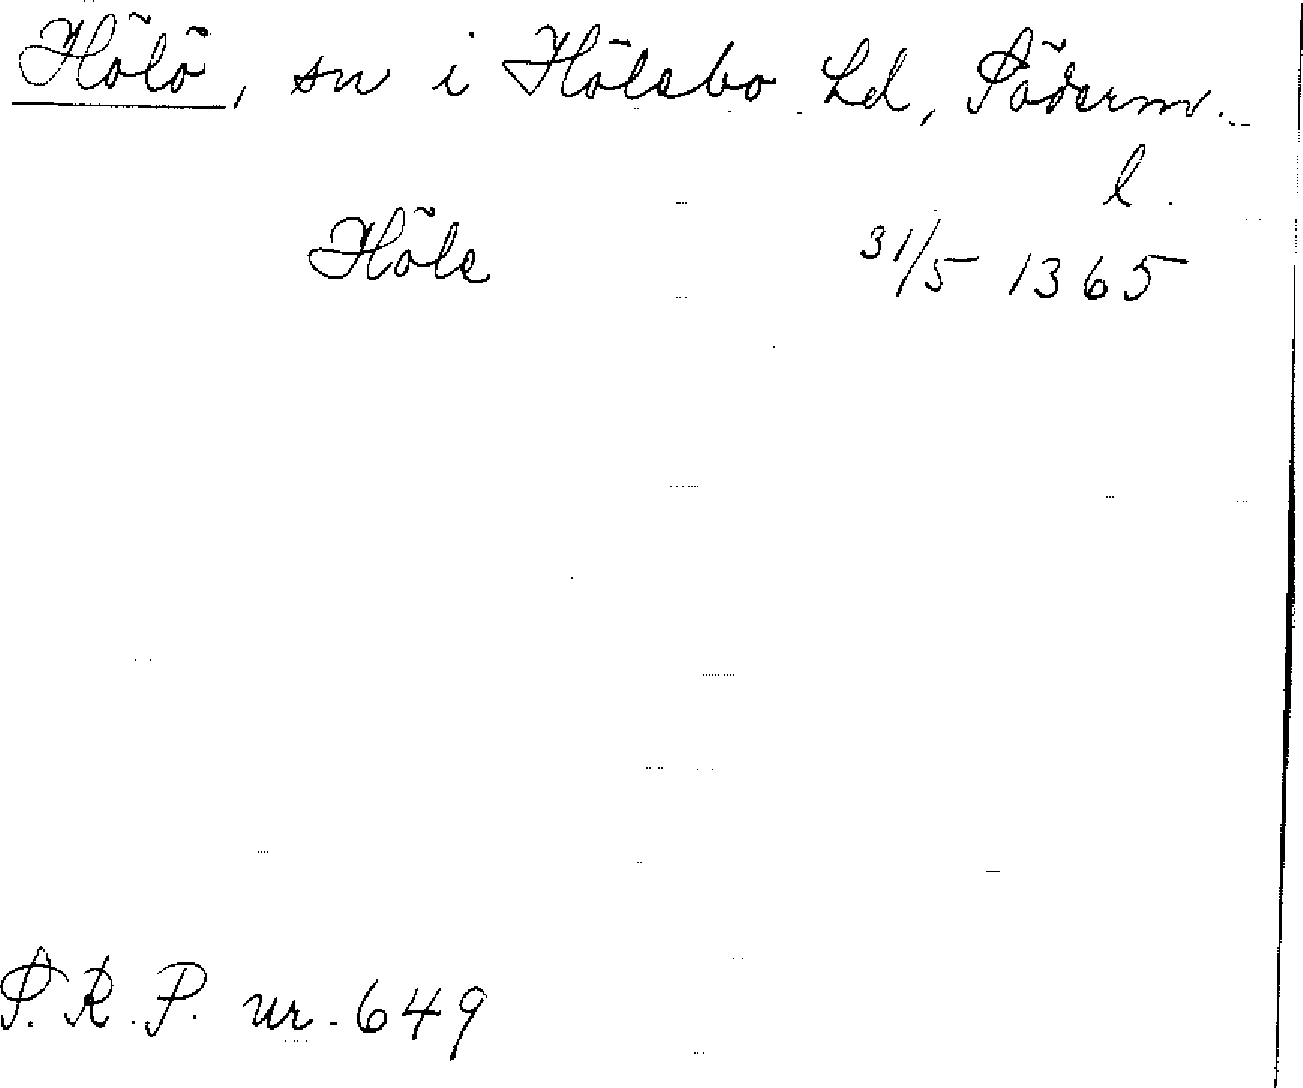 Hölö, sn i Hölebo hd, Söderm.
l.
Höle 31/5 1365
S.R.P. nr. 649